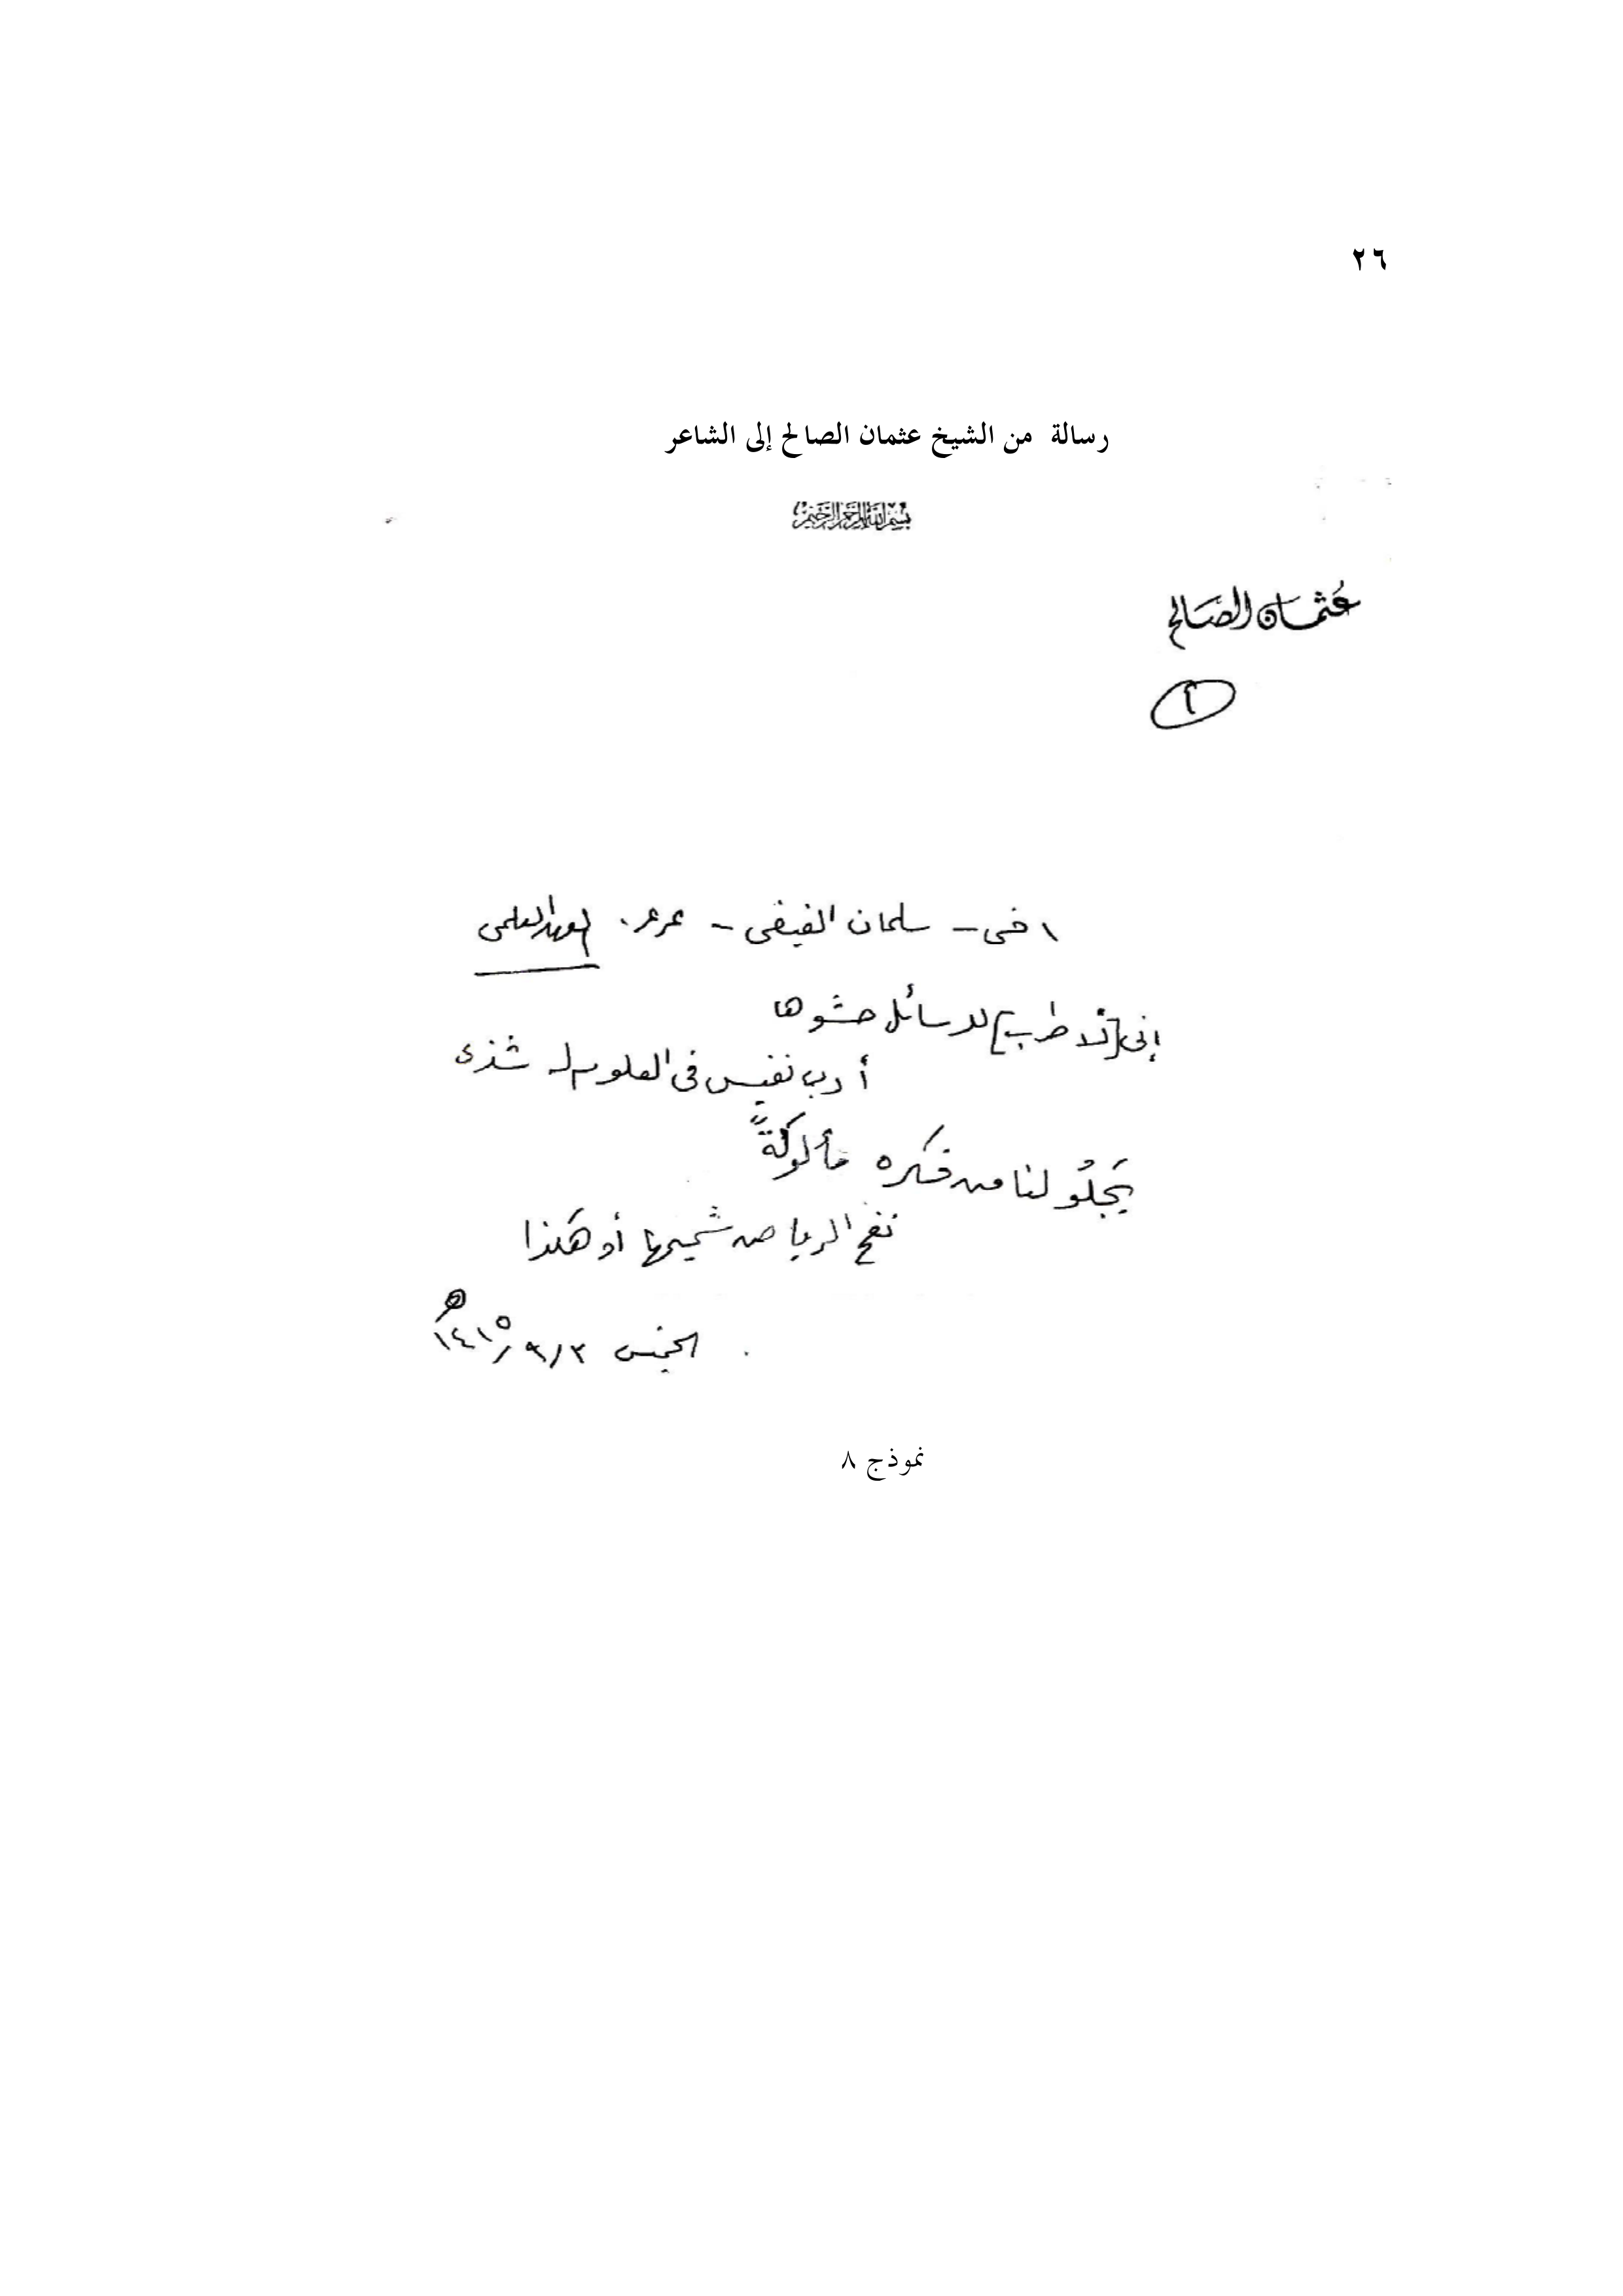 ٢٦
رسالة من الشيخ عثمان الصالح إلى الشاعر
بسم الله الرحمن الرحيم
عثمان الصالح
٢
اخى - سلمان الفيفى - عرعر. المعهد العلمى
إنى [لأطرب] للرسائل حشوها
أدب نفيس فى العلوم له شذى
يَجلُو لنا من فكره مألوكةً
نفح الرياض شميمها أو هكذا
الخميس ٣/٩/١٤١٥هـ
نموذج ٨